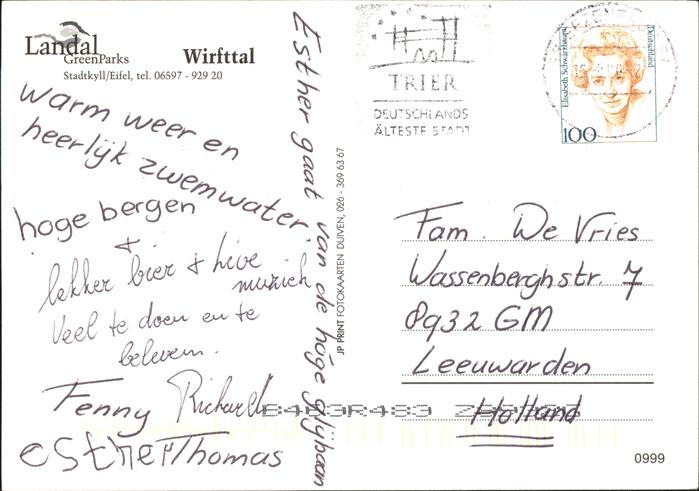 Landal
GreenParks
Wirfttal
Stadtkyll/Eifel, tel. 06597 - 929 20
warm weer en
heerlijk zwemwater.
hoge bergen
+
lekker bier + live
muziek
Veel te doen en te
beleven.
Fenny Richard
esther Thomas
Esther gaat van de hoge glijbaan
JP PRINT FOTOKAARTEN DUIVEN, 026 - 369 63 67
TRIER
DEUTSCHLANDS
ÄLTESTE STADT
Elisabeth Schwarzhaupt
Deutschland
100
Fam. De Vries
Wassenberghstr. 7
8932 GM
Leeuwarden
Holland
0999